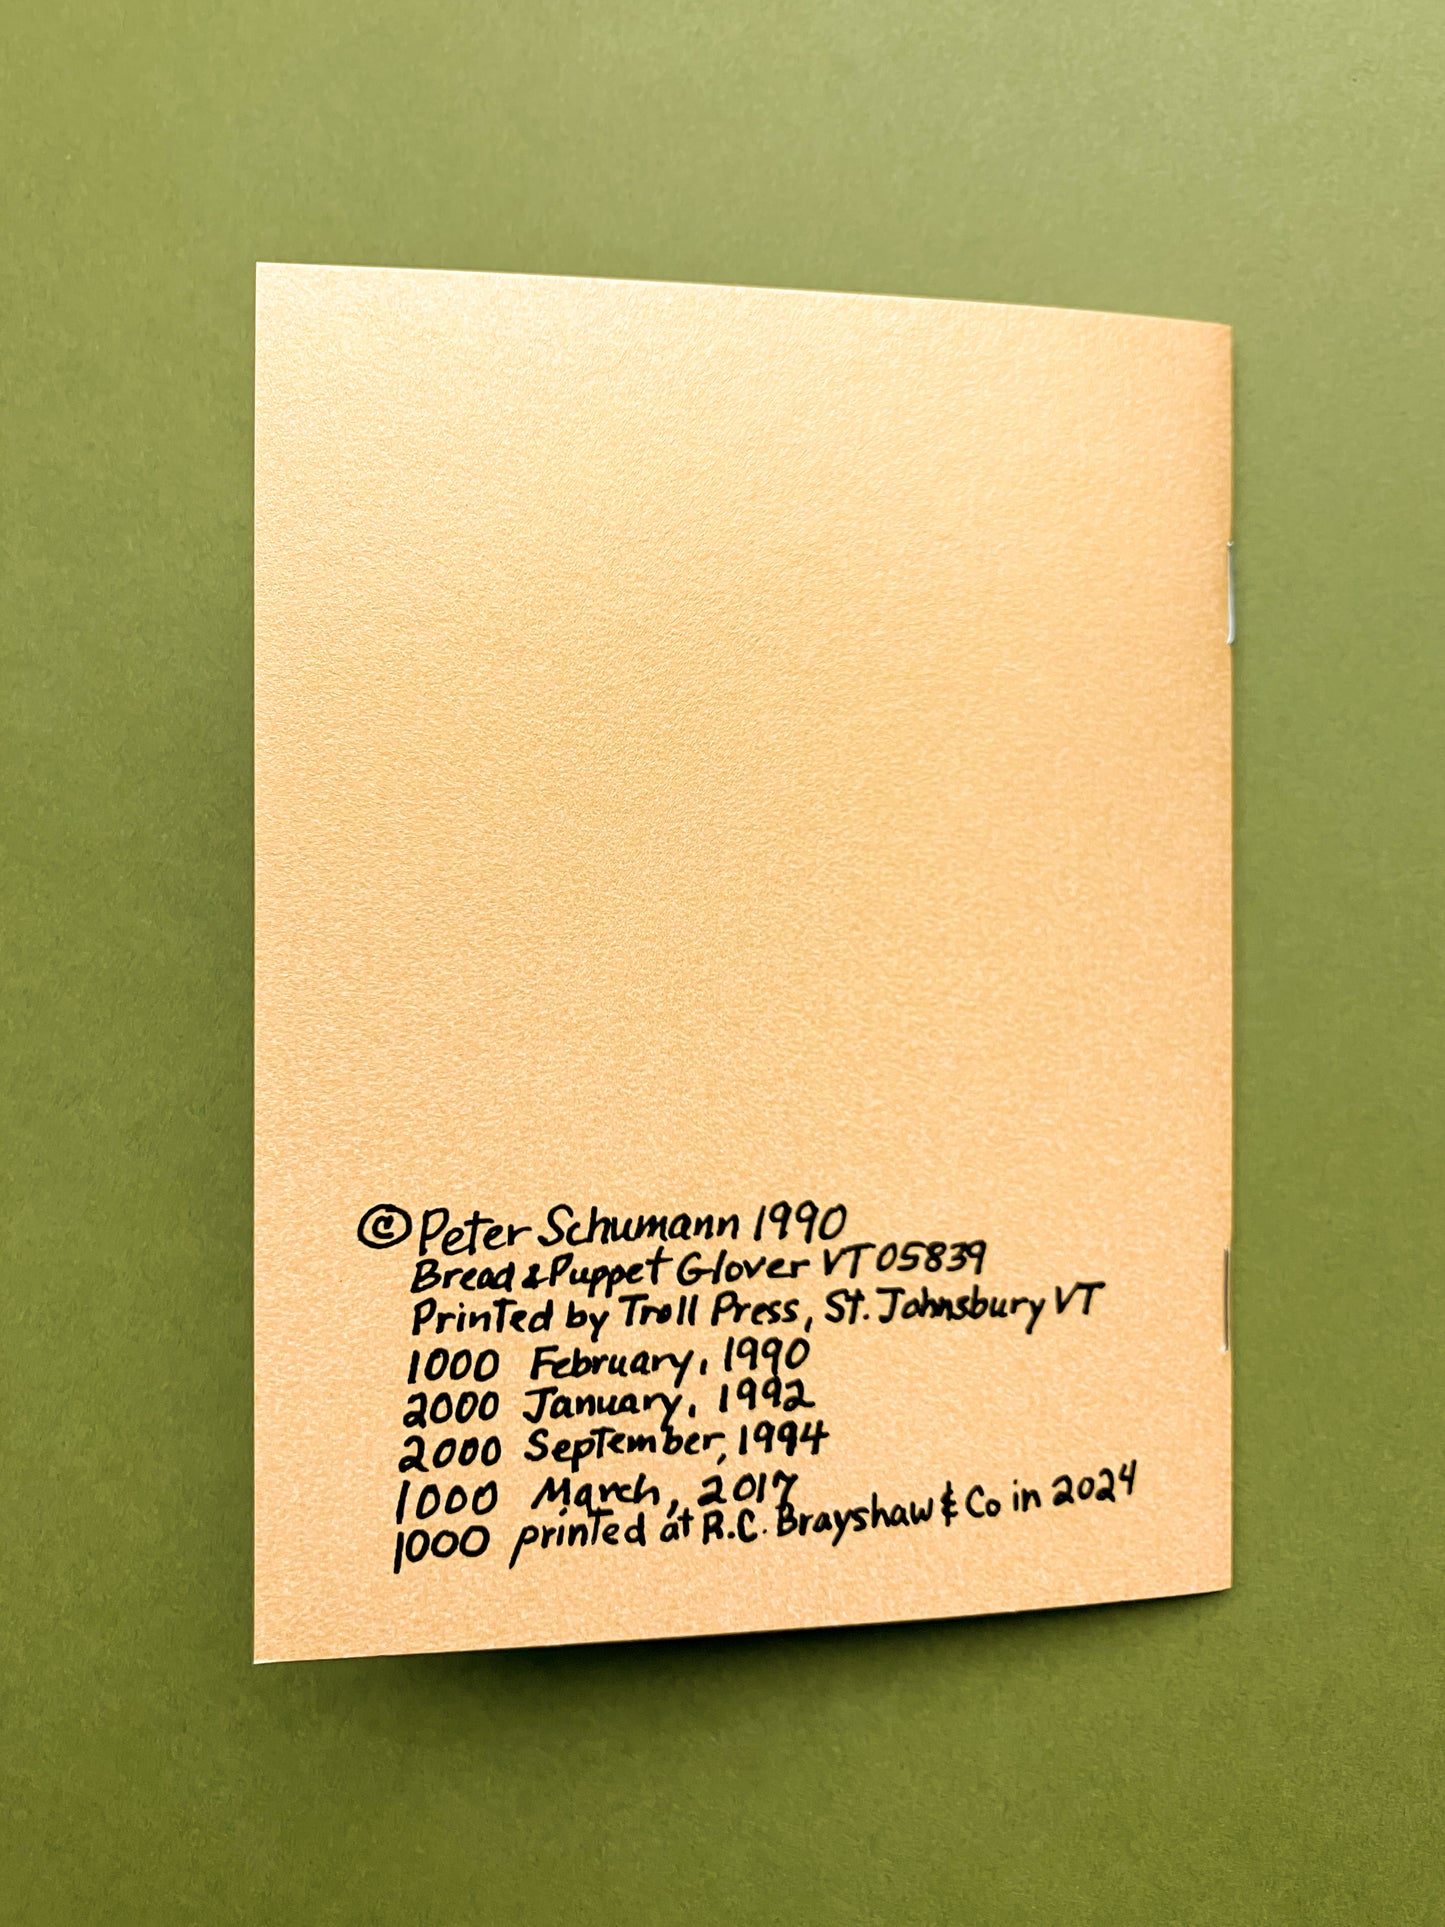 © Peter Schumann 1990
Bread & Puppet Glover VT 05839
Printed by Troll Press, St. Johnsbury VT
1000 February, 1990
2000 January, 1992
2000 September, 1994
1000 March, 2017
1000 printed at R.C. Brayshaw & Co in 2024